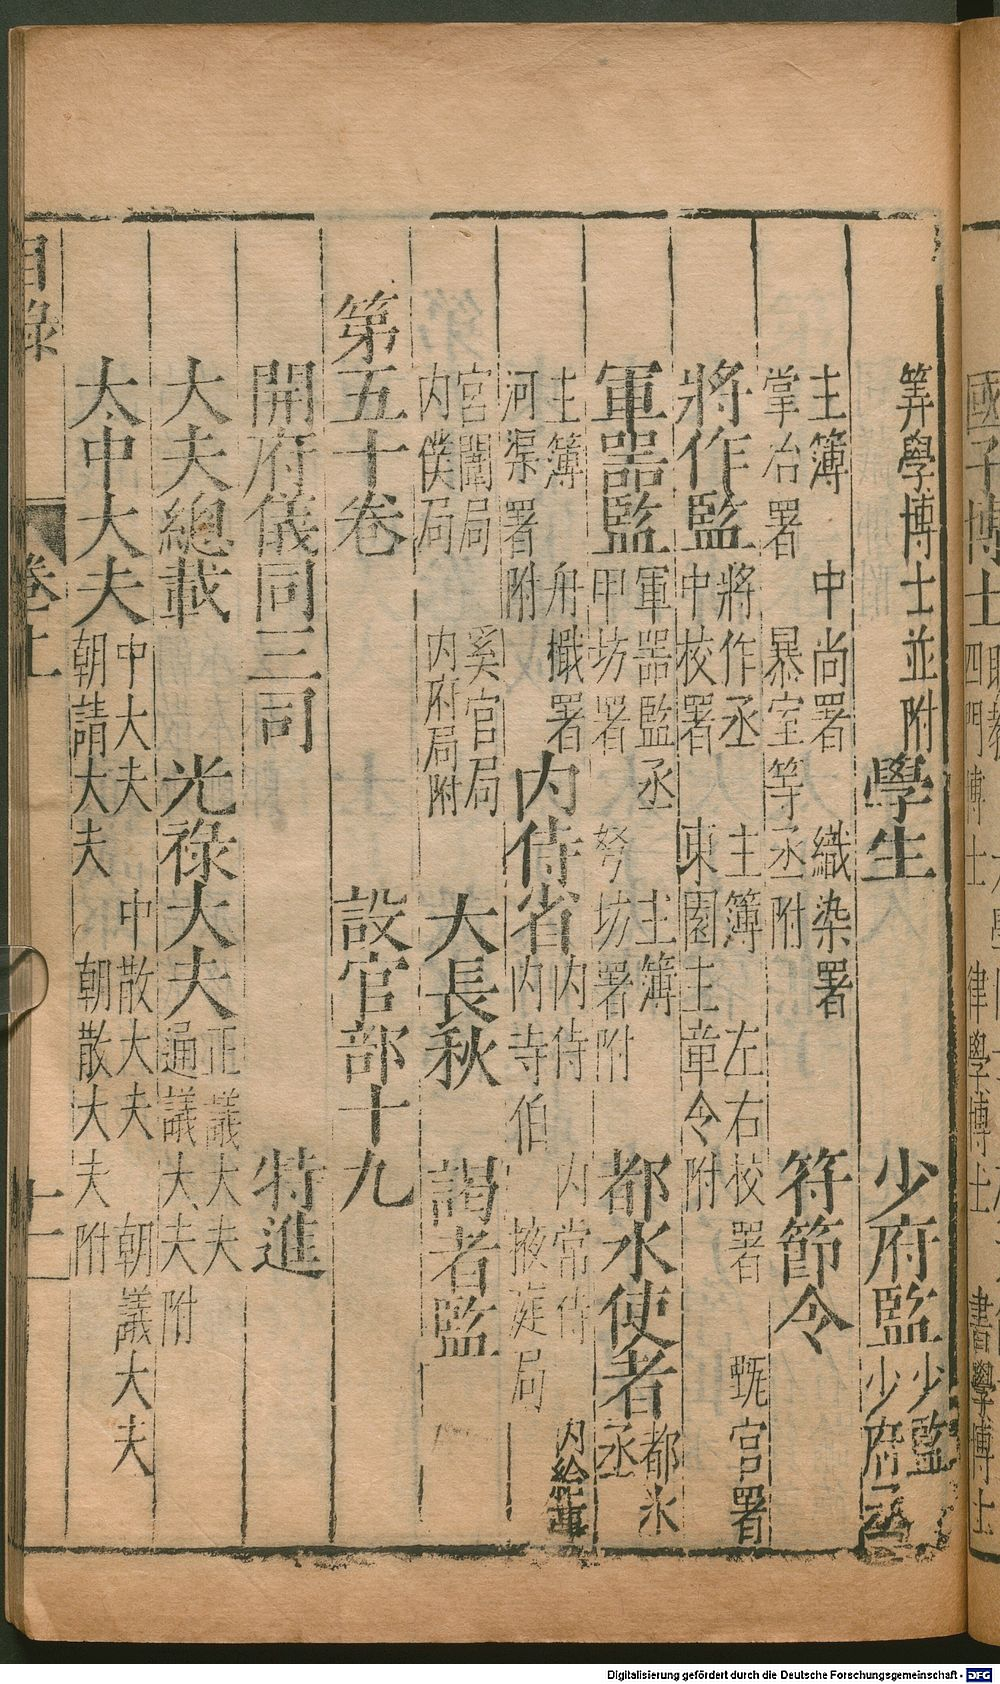 筭學博士並附 學生 少府監 少監 少府丞
主簿 中尚署 織染署
掌冶署 暴室等丞附 符節令
將作監 將作丞 主簿 左右校署 甄官署
中校署 東園主章令附
軍器監 軍器監丞 主簿
甲坊署 弩坊署附 都水使者 都水丞
主簿 舟檝署
河渠署附 內侍省 內侍 內常侍 內給事
內寺伯 掖庭局
宮闈局 奚官局
內僕局 內府局附 大長秋 謁者監
第五十卷 設官部十九
開府儀同三司 特進
大夫總載 光祿大夫 正議大夫
通議大夫附
太中大夫 中大夫 中散大夫 朝議大夫
朝請大夫 朝散大夫附
目錄 卷上 十一
國子博士
四門博士 律學博士 書學博士
Digitalisierung gefördert durch die Deutsche Forschungsgemeinschaft - DFG